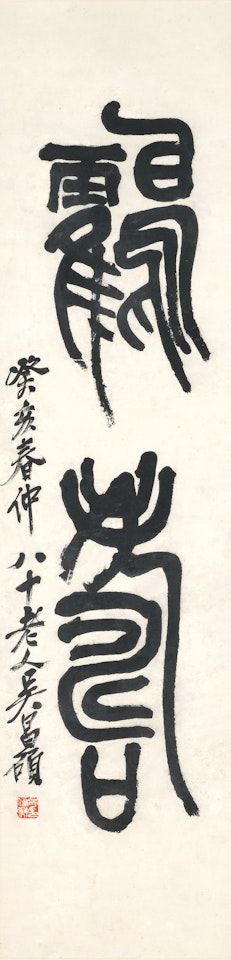 鶴壽
癸亥春仲 八十老人吳昌碩